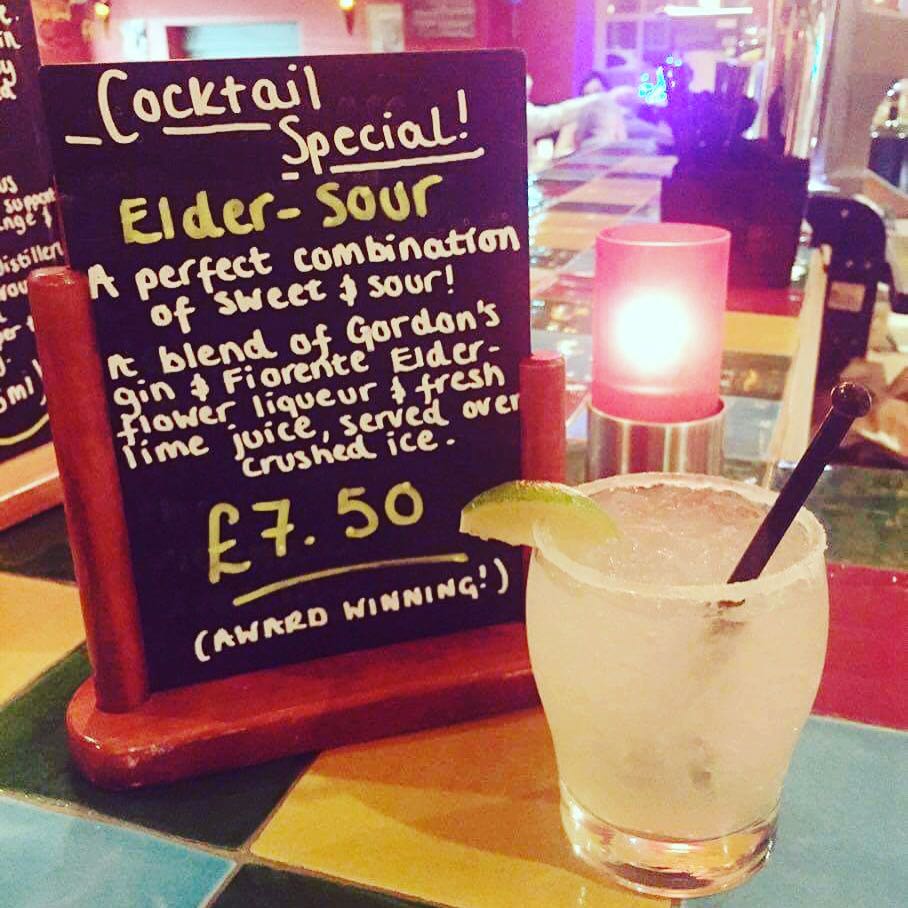 Cocktail
Special!
Elder-Sour
A perfect combination
of sweet & sour!
A blend of Gordon's
gin & Fiorente Elder-
flower liqueur & fresh
lime juice, served over
crushed ice.
£7.50
(AWARD WINNING!)